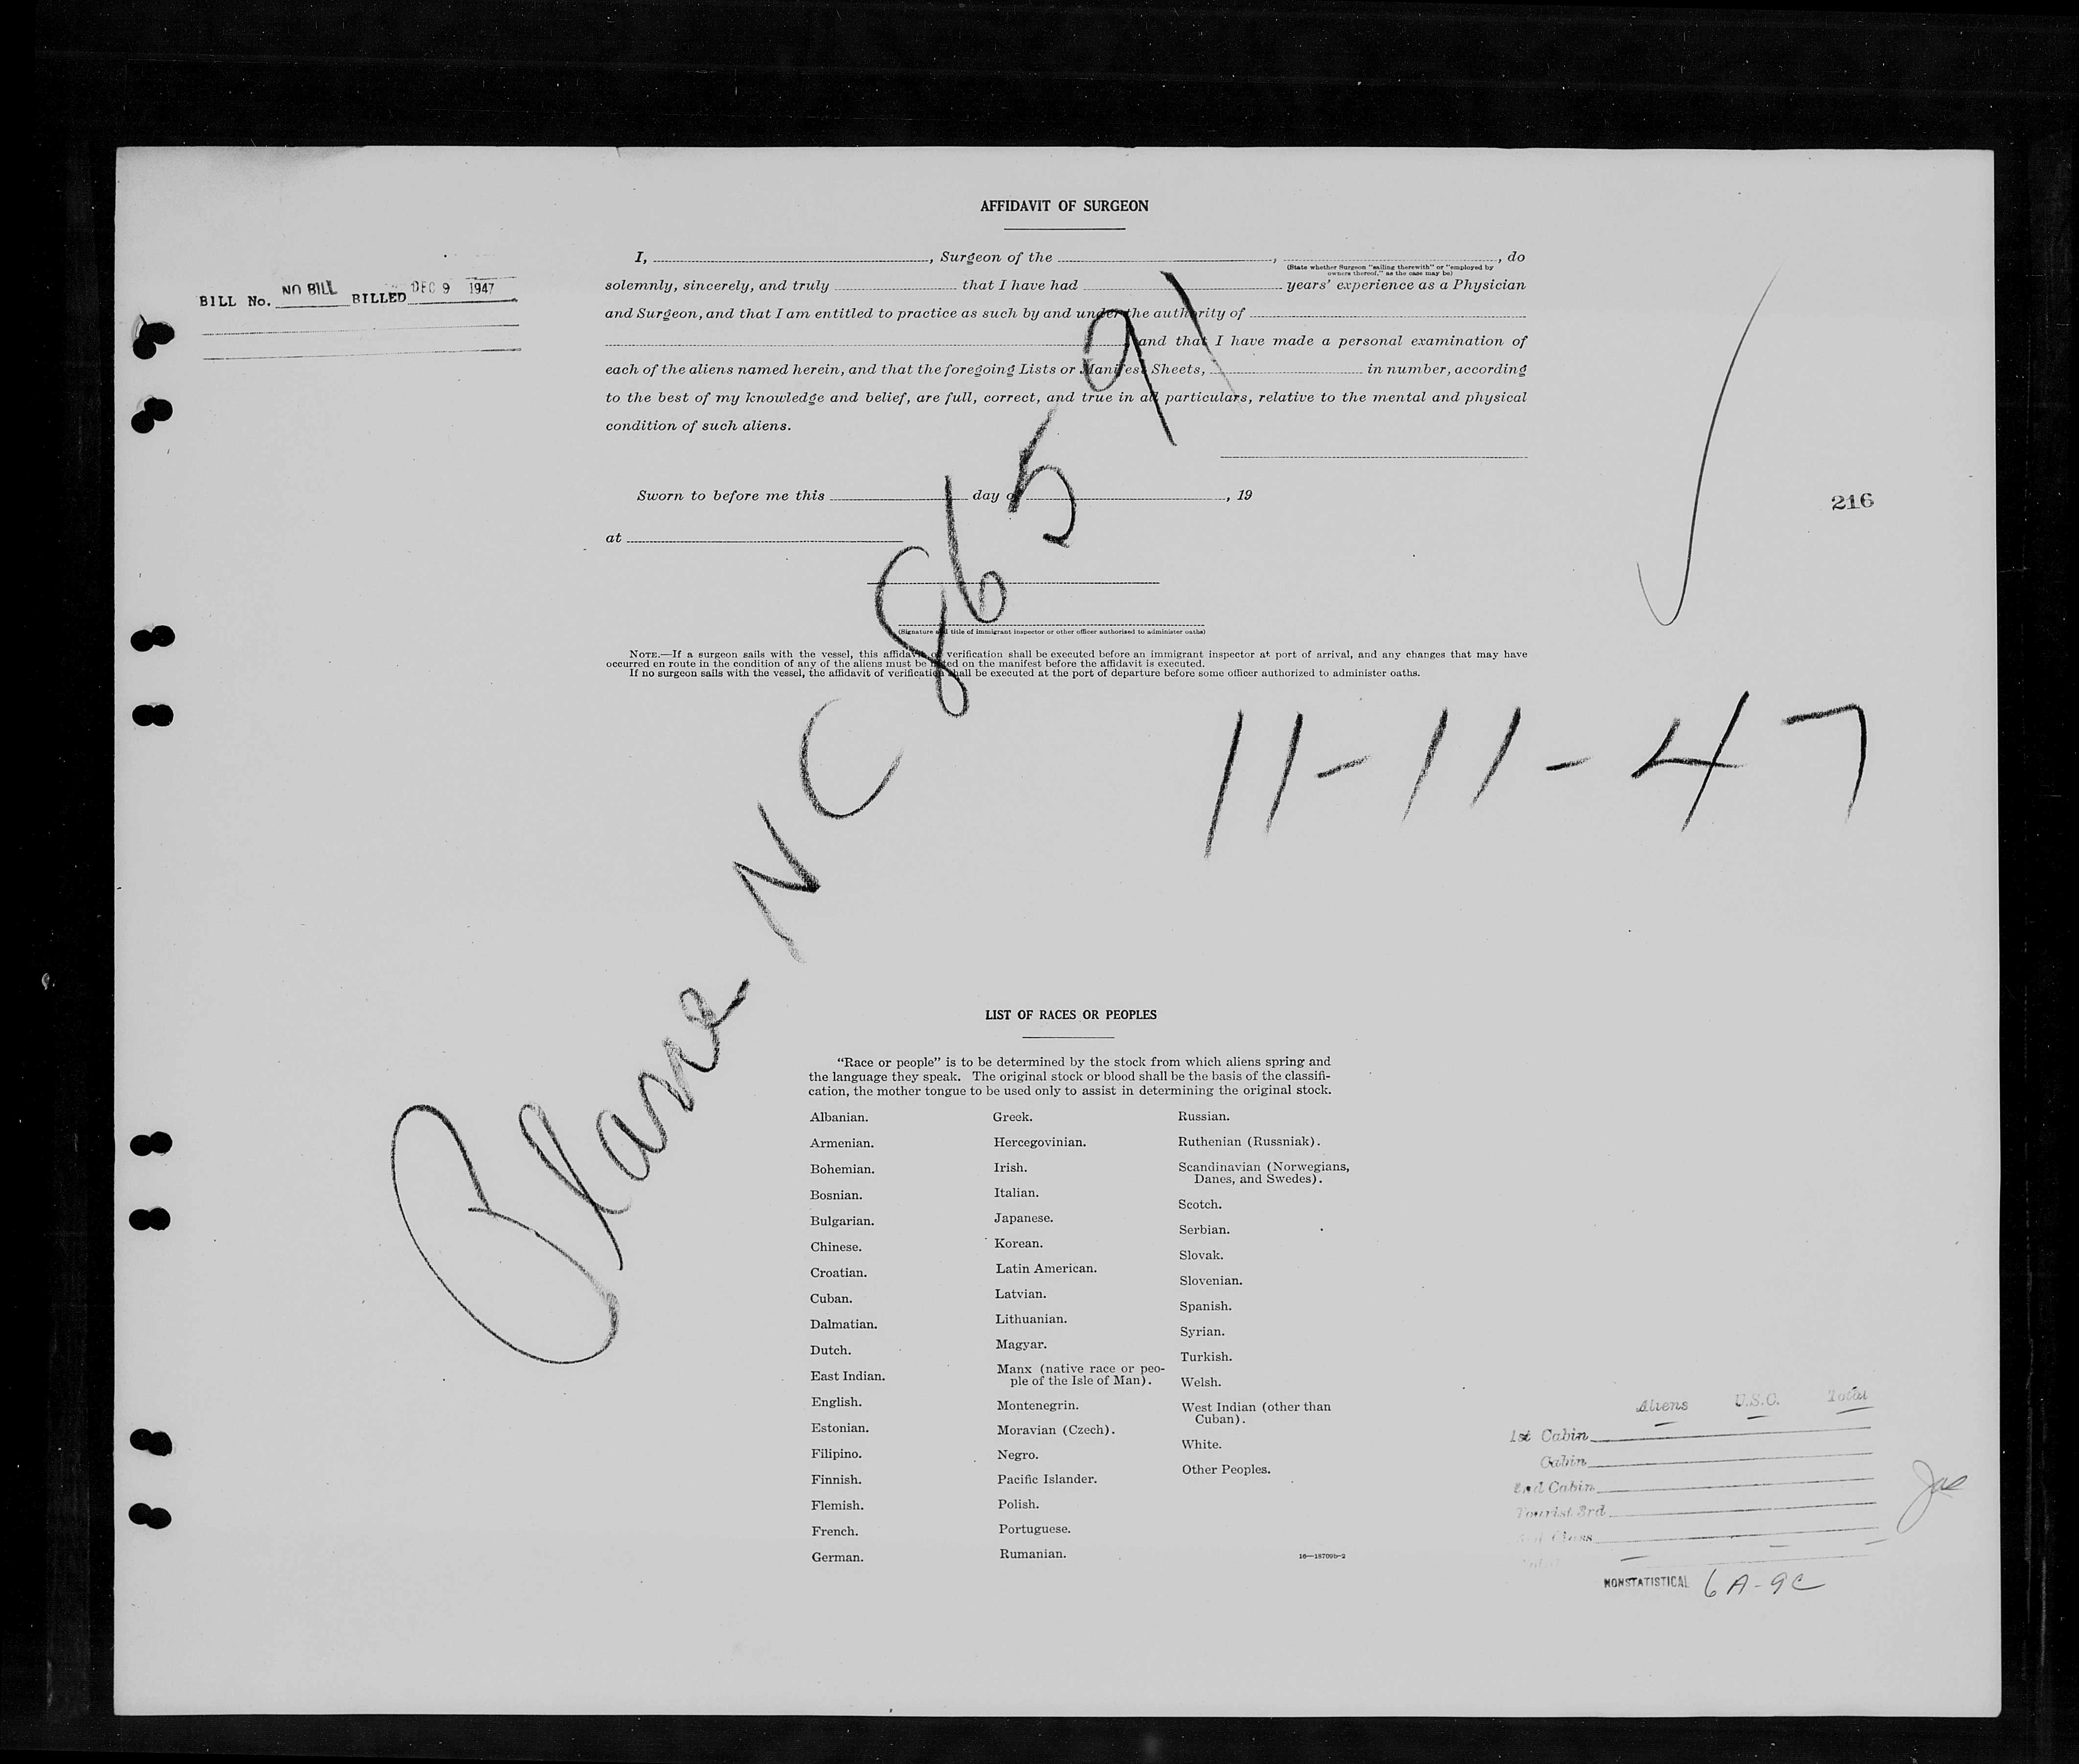 AFFIDAVIT OF SURGEON
I, , Surgeon of the , , do
(State whether Surgeon "sailing therewith" or "employed by
owners thereof," as the case may be)
BILL No. NO BILL BILLED DEC 9 1947
solemnly, sincerely, and truly that I have had years' experience as a Physician
and Surgeon, and that I am entitled to practice as such by and under the authority of
and that I have made a personal examination of
each of the aliens named herein, and that the foregoing Lists or Manifest Sheets, in number, according
to the best of my knowledge and belief, are full, correct, and true in all particulars, relative to the mental and physical
condition of such aliens.
Sworn to before me this day of , 19
216
at
(Signature and title of immigrant inspector or other officer authorized to administer oaths)
NOTE.—If a surgeon sails with the vessel, this affidavit of verification shall be executed before an immigrant inspector at port of arrival, and any changes that may have
occurred en route in the condition of any of the aliens must be noted on the manifest before the affidavit is executed.
If no surgeon sails with the vessel, the affidavit of verification shall be executed at the port of departure before some officer authorized to administer oaths.
NC 86591
11-11-47
LIST OF RACES OR PEOPLES
"Race or people" is to be determined by the stock from which aliens spring and
the language they speak. The original stock or blood shall be the basis of the classifi-
cation, the mother tongue to be used only to assist in determining the original stock.
Albanian.
Armenian.
Bohemian.
Bosnian.
Bulgarian.
Chinese.
Croatian.
Cuban.
Dalmatian.
Dutch.
East Indian.
English.
Estonian.
Filipino.
Finnish.
Flemish.
French.
German.
Greek.
Hercegovinian.
Irish.
Italian.
Japanese.
Korean.
Latin American.
Latvian.
Lithuanian.
Magyar.
Manx (native race or peo-
ple of the Isle of Man).
Montenegrin.
Moravian (Czech).
Negro.
Pacific Islander.
Polish.
Portuguese.
Rumanian.
Russian.
Ruthenian (Russniak).
Scandinavian (Norwegians,
Danes, and Swedes).
Scotch.
Serbian.
Slovak.
Slovenian.
Spanish.
Syrian.
Turkish.
Welsh.
West Indian (other than
Cuban).
White.
Other Peoples.
16—18709b-2
Aliens U.S.C. Total
1st Cabin
Cabin
2nd Cabin
Tourist 3rd
Class
NONSTATISTICAL 6A-9C